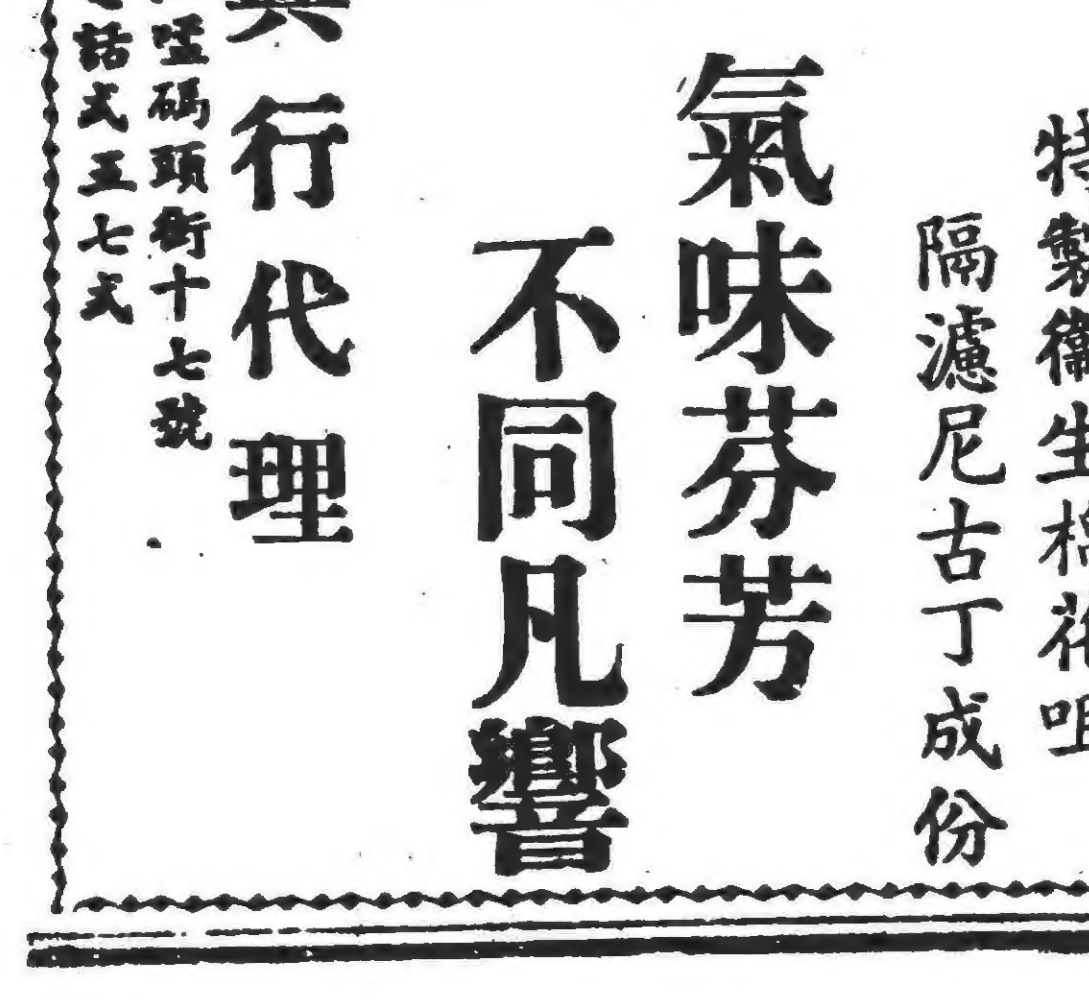 特製衛生棉花咀
隔濾尼古丁成份
氣味芬芳
不同凡響
行代理
碼頭街十七號
話弍五七弍